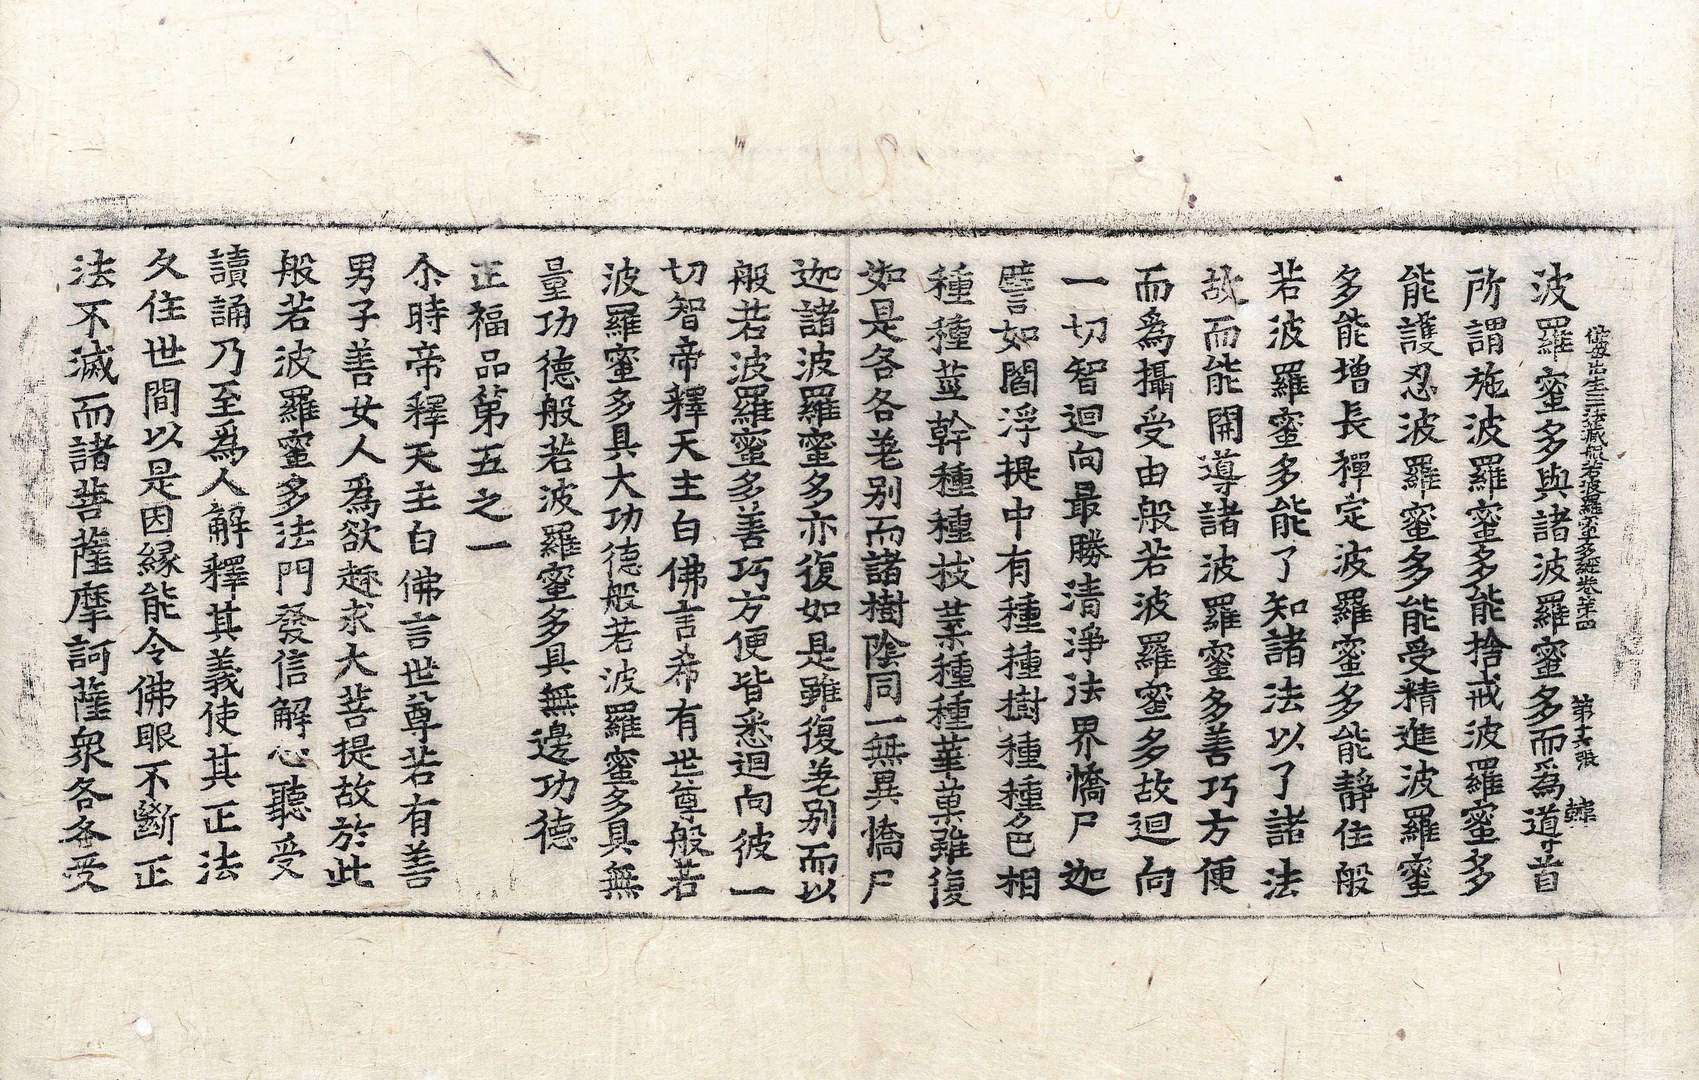 佛母出生三法藏般若波羅蜜多經卷第四 第十六張 韓
波羅蜜多與諸波羅蜜多而爲導首
所謂施波羅蜜多能捨戒波羅蜜多
能護忍波羅蜜多能受精進波羅蜜
多能增長禪定波羅蜜多能靜住般
若波羅蜜多能了知諸法以了諸法
故而能開導諸波羅蜜多善巧方便
而爲攝受由般若波羅蜜多故迴向
一切智迴向最勝清淨法界憍尸迦
譬如閻浮提中有種種樹種種色相
種種莖幹種種枝葉種種華菓雖復
如是各各差别而諸樹陰同一無異憍尸
迦諸波羅蜜多亦復如是雖復差别而以
般若波羅蜜多善巧方便皆悉迴向彼一
切智帝釋天主白佛言希有世尊般若
波羅蜜多具大功德般若波羅蜜多具無
量功德般若波羅蜜多具無邊功德
正福品第五之一
尒時帝釋天主白佛言世尊若有善
男子善女人爲欲趣求大菩提故於此
般若波羅蜜多法門發信解心聽受
讀誦乃至爲人解釋其義使其正法
久住世間以是因緣能令佛眼不斷正
法不滅而諸菩薩摩訶薩衆各各受